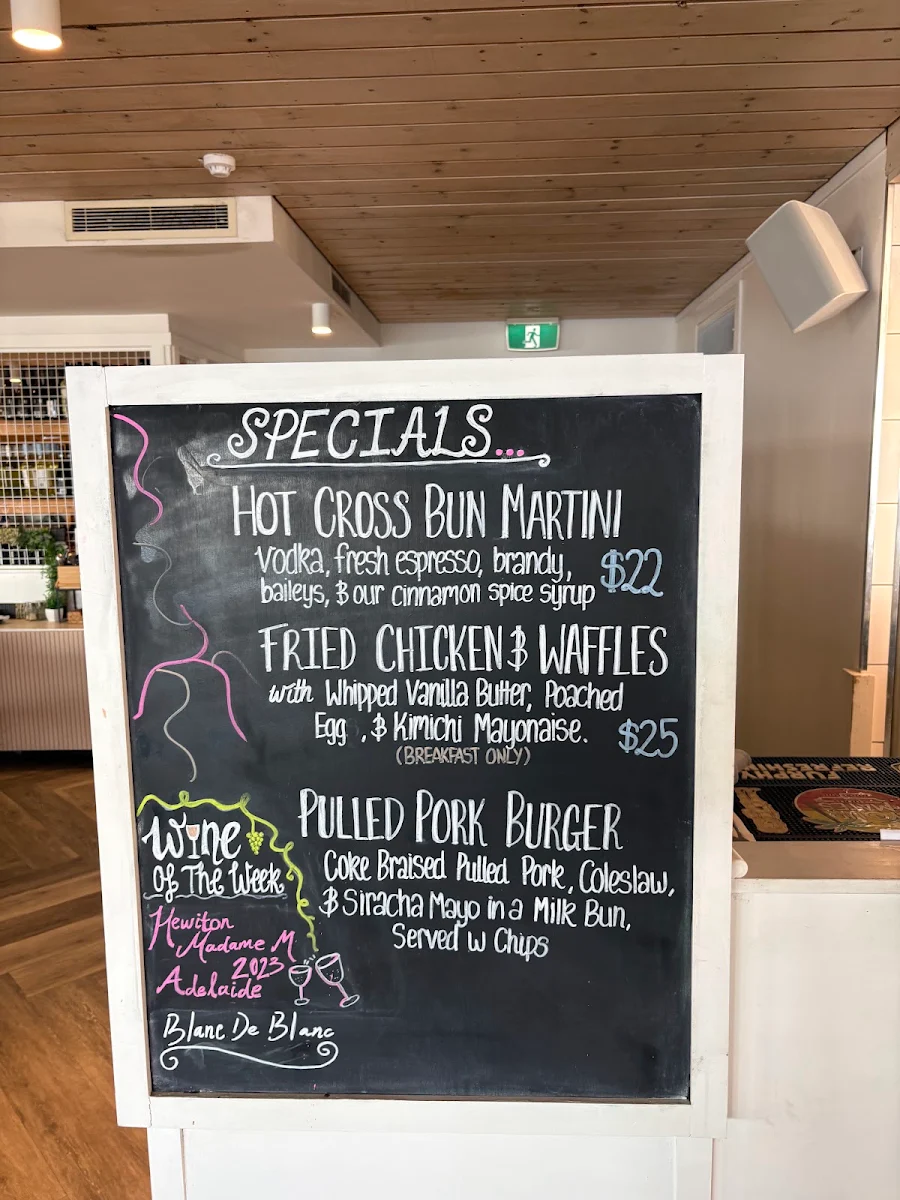 SPECIALS...
HOT CROSS BUN MARTINI
Vodka, fresh espresso, brandy,
baileys, & our cinnamon spice syrup
$22
FRIED CHICKEN & WAFFLES
with Whipped Vanilla Butter, Poached
Egg , & Kimichi Mayonaise.
$25
(BREAKFAST ONLY)
PULLED PORK BURGER
Coke Braised Pulled Pork, Coleslaw,
& Siracha Mayo in a Milk Bun,
Served w Chips
Wine
of The Week
Hewiton
Madame M
2023
Adelaide
Blanc De Blanc
FURPHY
REFRESHI